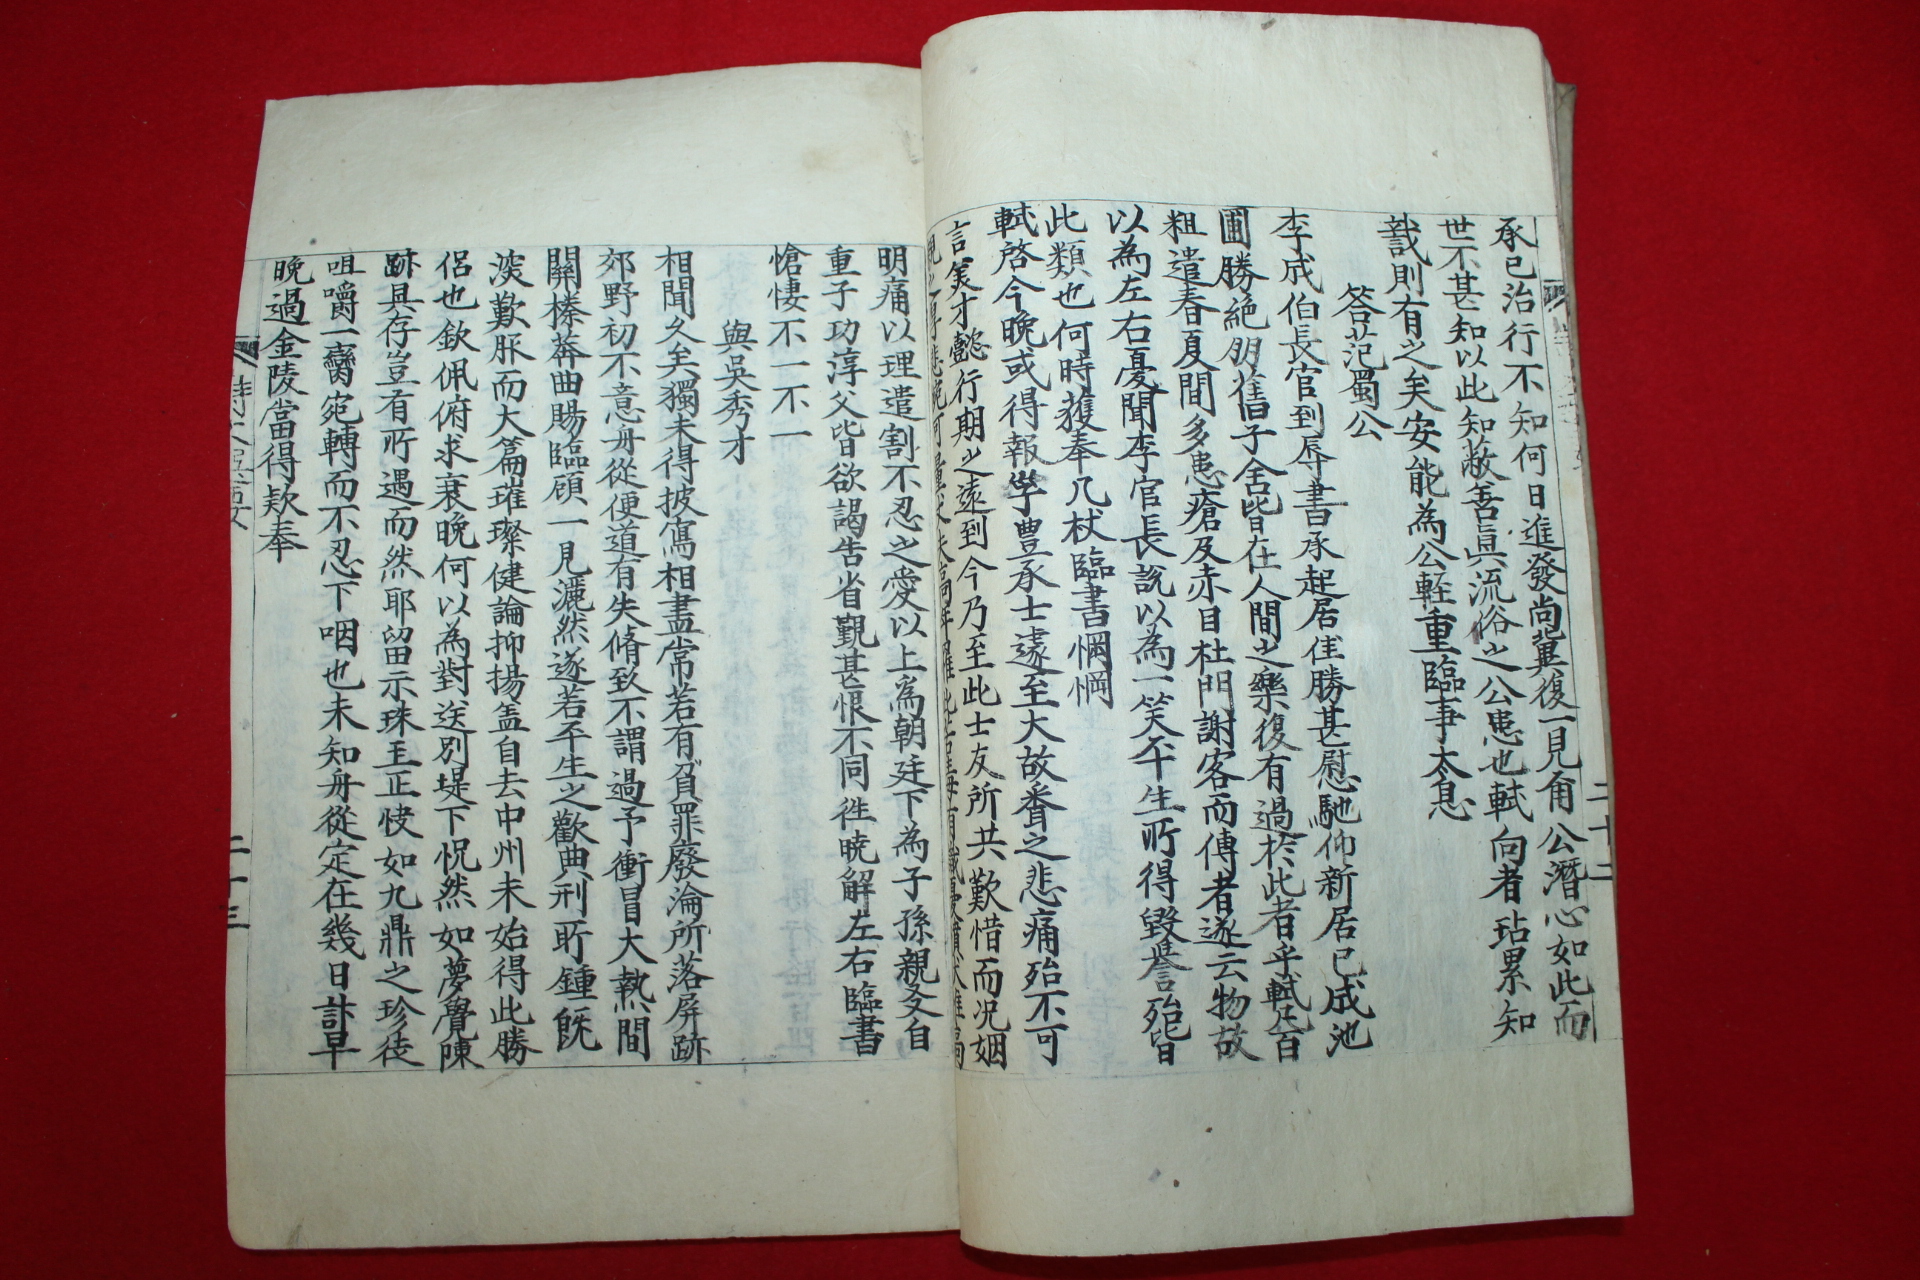 承已治行不知何日進發尚冀復一見角公潛心如此而
世不甚知以此知蔽善眞流俗之公患也軾向者玷累知
識則有之矣安能為公輊重臨事太息
答范蜀公
李成伯長官到辱書承起居佳勝甚慰馳仰新居已成池
圃勝絶朋舊子舍皆在人間之樂復有過於此者乎軾凡百
粗遣春夏間多患瘡及赤目杜門謝客而傳者遂云物故
以為左右憂聞李官長說以為一笑平生所得毀譽殆皆
此類也何時獲奉几杖臨書惘惘
軾啓今晚或得報學豊承士遽至大故聞之悲痛殆不可
言美才懿行期之遠到今乃至此士友所共歎惜而况姻
明痛以理遣割不忍之愛以上爲朝廷下為子孫親友自
重子功淳父皆欲謁告省覲甚恨不同徃曉解左右臨書
愴悽不一不一
與吳秀才
相聞久矣獨未得披寫相盡常若有負罪廢淪所落屏跡
郊野初不意舟從便道有失脩致不謂過予衝冒大熱間
關榛莽曲賜臨顧一見灑然遂若平生之歡典刑所鍾旣
深歎服而大篇璀璨健論抑揚盖自去中州未始得此勝
侣也欽佩俯求衰晚何以為對送別堤下怳然如夢覺陳
跡具存豈有所遇而然耶留示珠玉正快如九鼎之珍徒
咀嚼一臠宛轉而不忍下咽也未知舟從定在幾日計早
晚過金陵當得欵奉
二十二
二十三